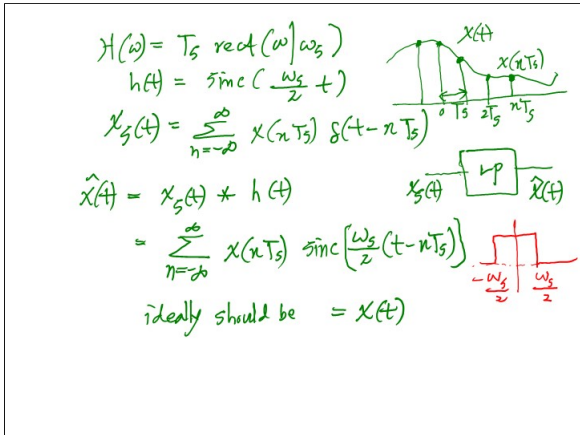 H(ω) = Ts rect(ω|ωs)
h(t) = sinc( ωs/2 t)
xs(t) = ∑_{n=-∞}^{∞} x(nTs) δ(t-nTs)
x̂(t) = xs(t) * h(t)
= ∑_{n=-∞}^{∞} x(nTs) sinc[ωs/2 (t-nTs)]}
ideally should be = x(t)
x(t)
x(nTs)
0 Ts 2Ts nTs
xs(t) LP x̂(t)
-ωs/2 ωs/2